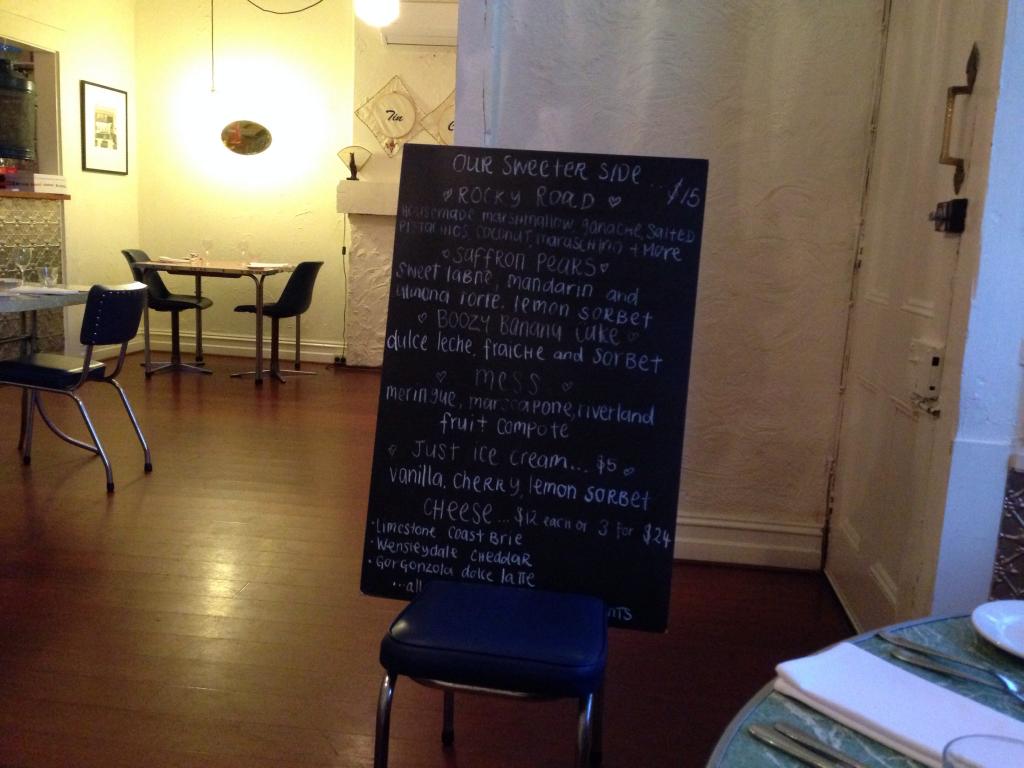 Tin
OUR SWEETER SIDE...$15
ROCKY ROAD
HOUSEMADE marshmallow, ganache, salted
PISTACHIOS, COCONUT, maraschino + more
SAFFRON PEARS
SWEET LABNE, mandarin and
almond torte, lemon SORBET
BOOZY Banana Cake
dulce leche, fraiche and SORBET
mess
meringue, marscapone, riverland
fruit compote
Just ice cream... $5
vanilla, cherry, lemon SORBET
CHEESE... $12 each or 3 for $24
· Limestone Coast Brie
· Wensleydale Cheddar
· Gorgonzola dolce latte
...all